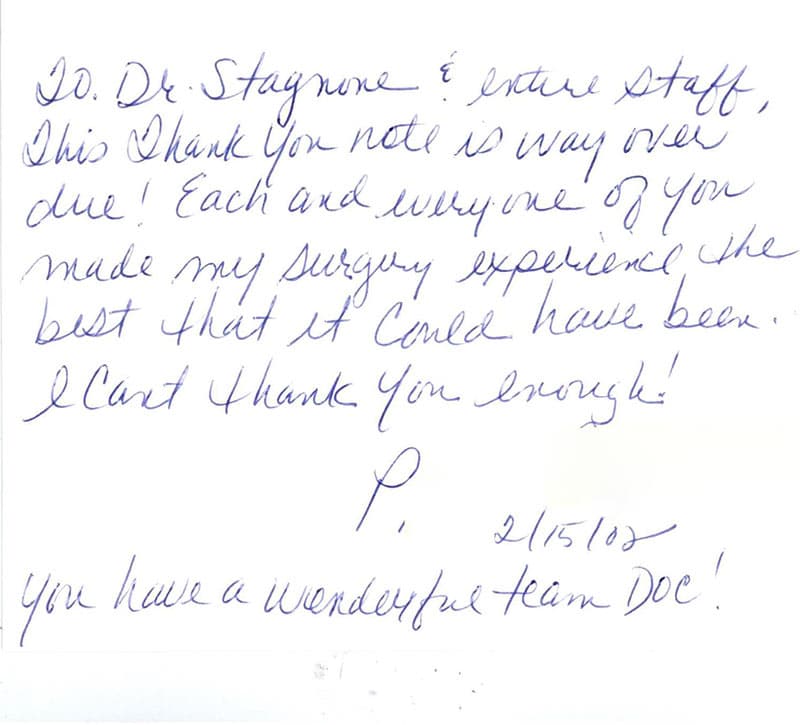 To. Dr. Stagnone & entire staff,
This Thank You note is way over
due! Each and everyone of you
made my surgery experience the
best that it could have been.
I Cant thank You enough!
P.
2/15/02
You have a wonderful team DOC!